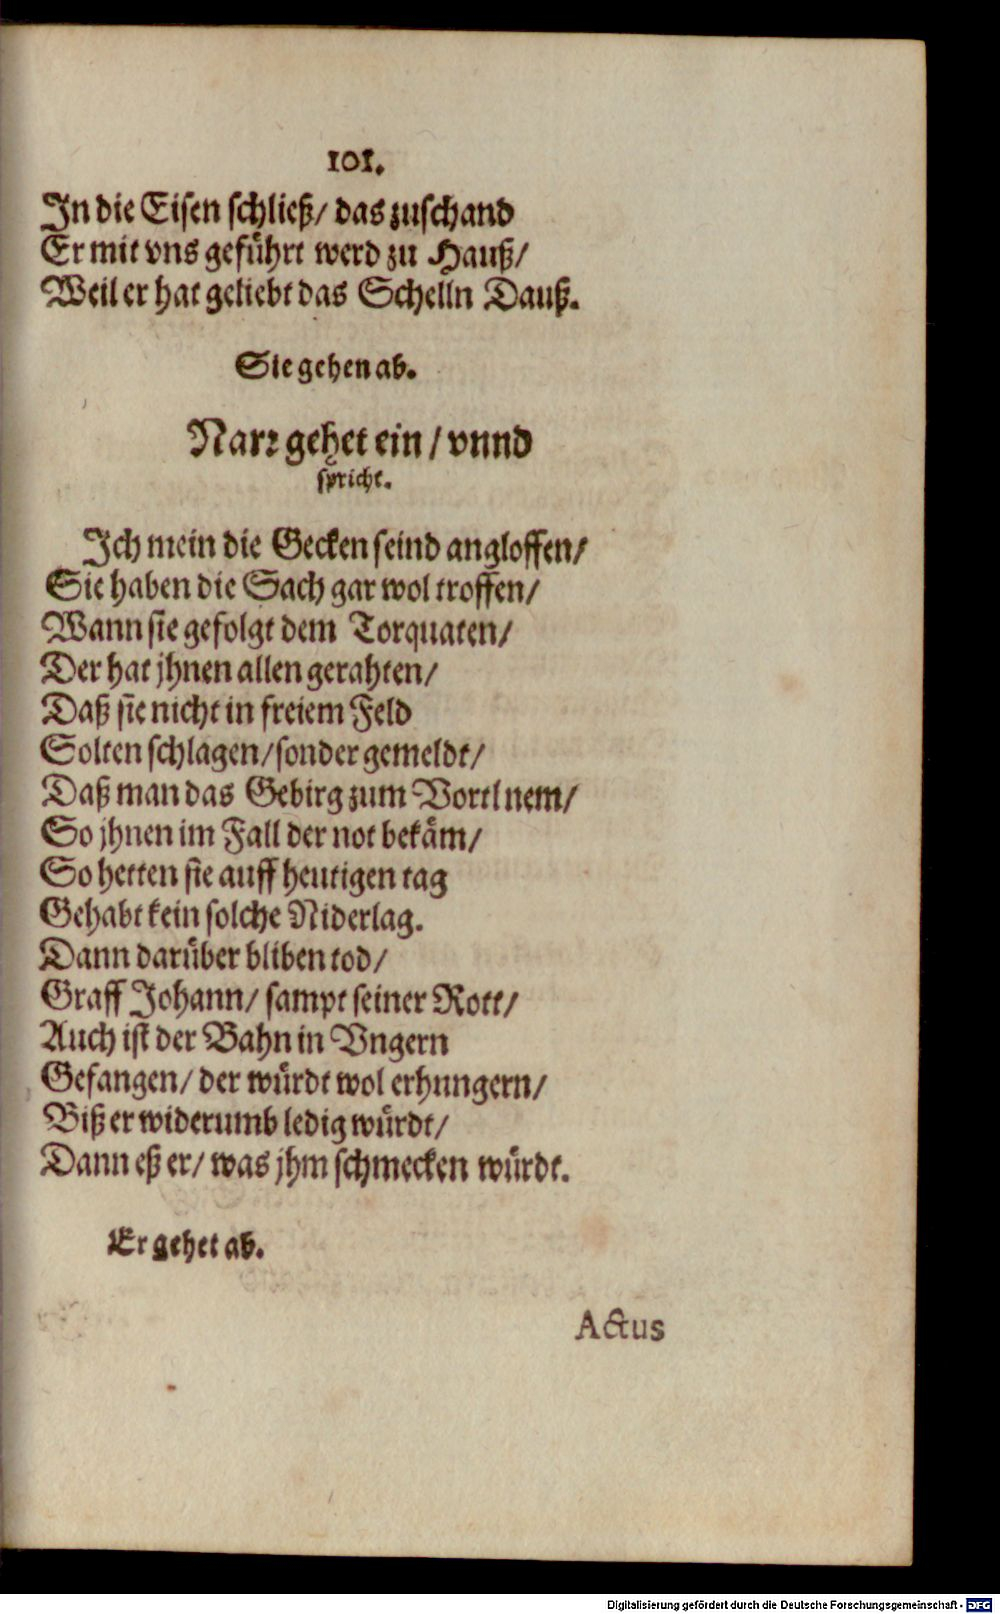 101.
In die Eisen schließ/ das zuschand
Er mit vns geführt werd zu Hauß/
Weil er hat geliebt das Schelln Dauß.
Sie gehen ab.
Narr gehet ein/ vnnd
spricht.
Ich mein die Gecken seind angloffen/
Sie haben die Sach gar wol troffen/
Wann sie gefolgt dem Torquaten/
Der hat jhnen allen gerahten/
Daß sie nicht in freiem Feld
Solten schlagen/ sonder gemeldt/
Daß man das Gebirg zum Vortl nem/
So jhnen im Fall der not bekäm/
So hetten sie auff heutigen tag
Gehabt kein solche Niderlag.
Dann darüber bliben tod/
Graff Johann/ sampt seiner Rott/
Auch ist der Bahn in Vngern
Gefangen/ der würdt wol erhungern/
Biß er widerumb ledig würdt/
Dann eß er/ was jhm schmecken würdt.
Er gehet ab.
Actus
Digitalisierung gefördert durch die Deutsche Forschungsgemeinschaft - DFG